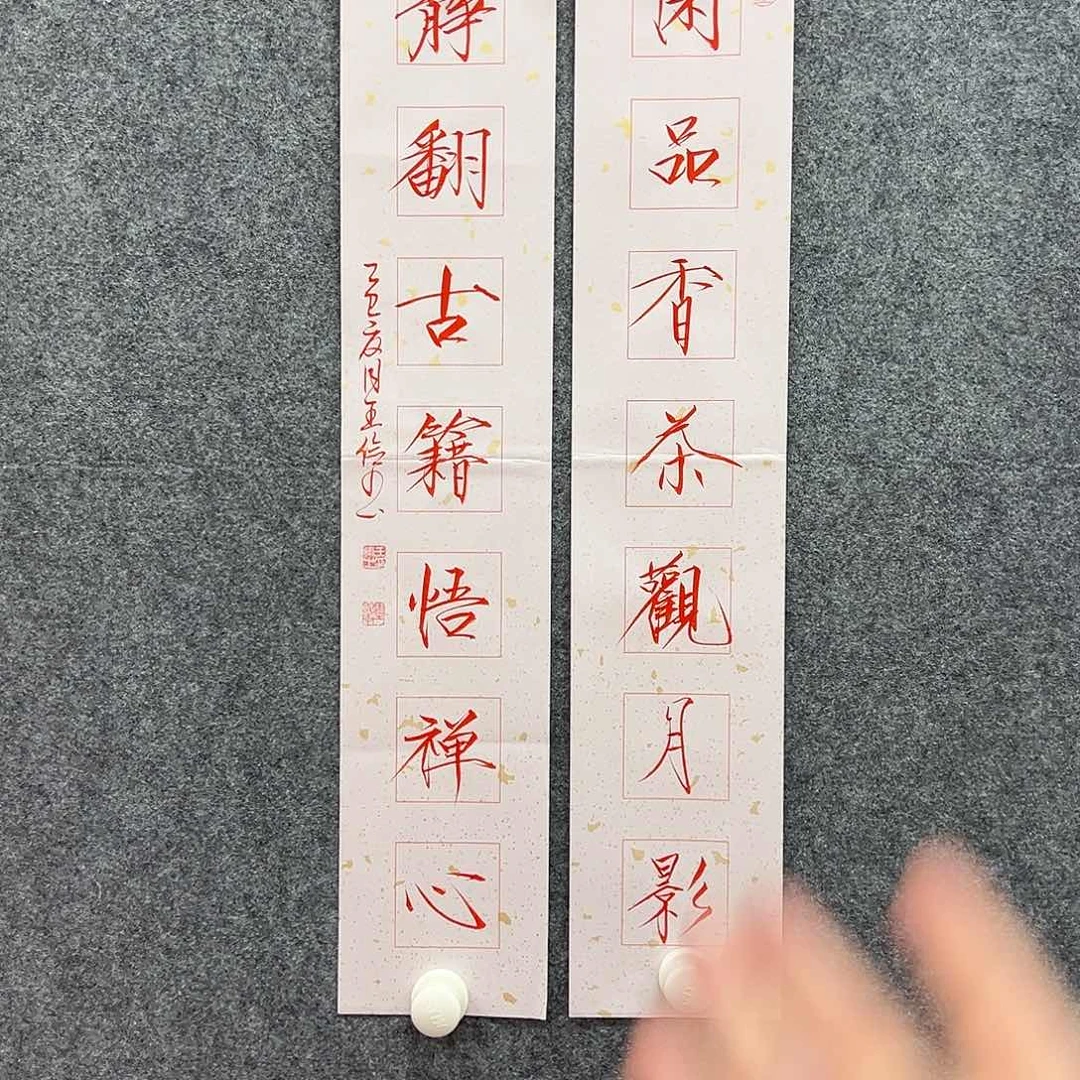 閑品香茶觀月影
靜翻古籍悟禅心
乙巳夏月王信少